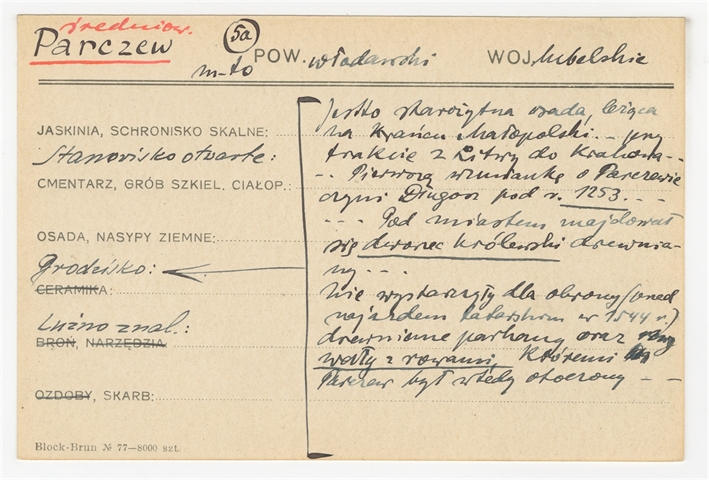 średniow.
Parczew
5a
m-to
POW. włodawski
WOJ. lubelskie
JASKINIA, SCHRONISKO SKALNE:
Stanowisko otwarte:
CMENTARZ, GRÓB SZKIEL. CIAŁOP.:
OSADA, NASYPY ZIEMNE:
Grodzisko:
CERAMIKA:
Luźno znal.:
BROŃ, NARZĘDZIA
OZDOBY, SKARB:
Jestto starożytna osada, leżąca
na krańcu Małopolski -- przy
trakcie z Litwy do Krakowa --
-- Pierwszą wzmiankę o Parczewie
czyni Długosz pod r. 1253. --
--- Pod miastem znajdował
się dworzec królewski drewnia-
ny ---
Nie wystarczyły dla obrony (przed
najazdem tatarskim w 1544 r.)
drewniane parkany oraz
wały z rowami, któremi
Parczew był wtedy otoczony --
Block-Brun № 77—8000 szt.